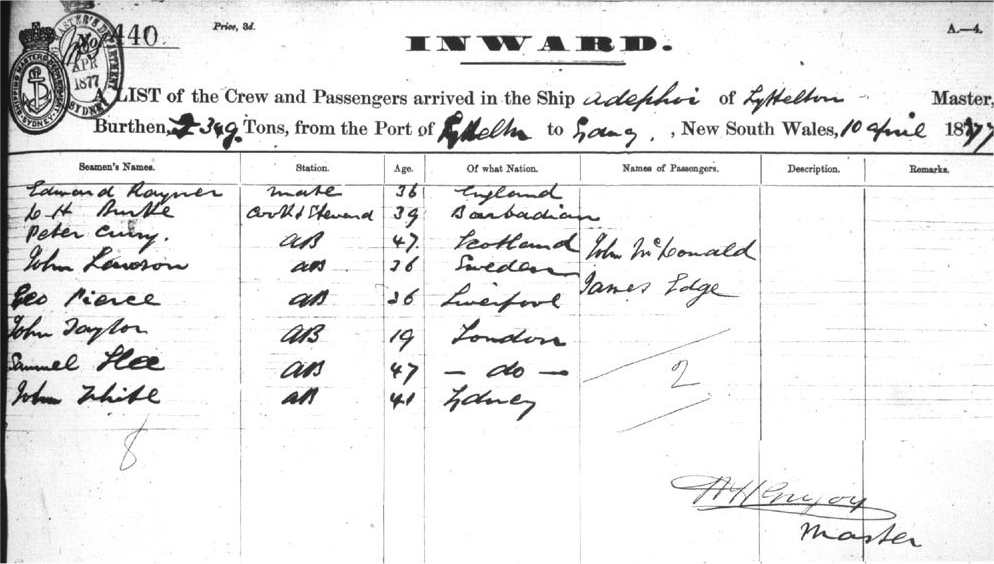 440
Price, 3d.
A.—4.
SHIPPING MASTER'S DEPARTMENT SYDNEY
MASTER'S DEPARTMENT SYDNEY
APR
1877
INWARD.
A LIST of the Crew and Passengers arrived in the Ship Adephoi of Lyttelton Master,
Burthen, 349 Tons, from the Port of Lyttelton to Sydney, New South Wales, 10 April 1877
Seamen's Names. Station. Age. Of what Nation. Names of Passengers. Description. Remarks.
Edward Rayner mate 36 England
H Burke Cook & Steward 39 Barbadian
Peter Curry. AB 47 Scotland John McDonald
John Lawson AB 36 Sweden
Geo Pierce AB 36 Liverpool James Edge
John Taylor AB 19 London
Samuel AB 47 — do — 2
John White AB 41 Sydney
8
Master